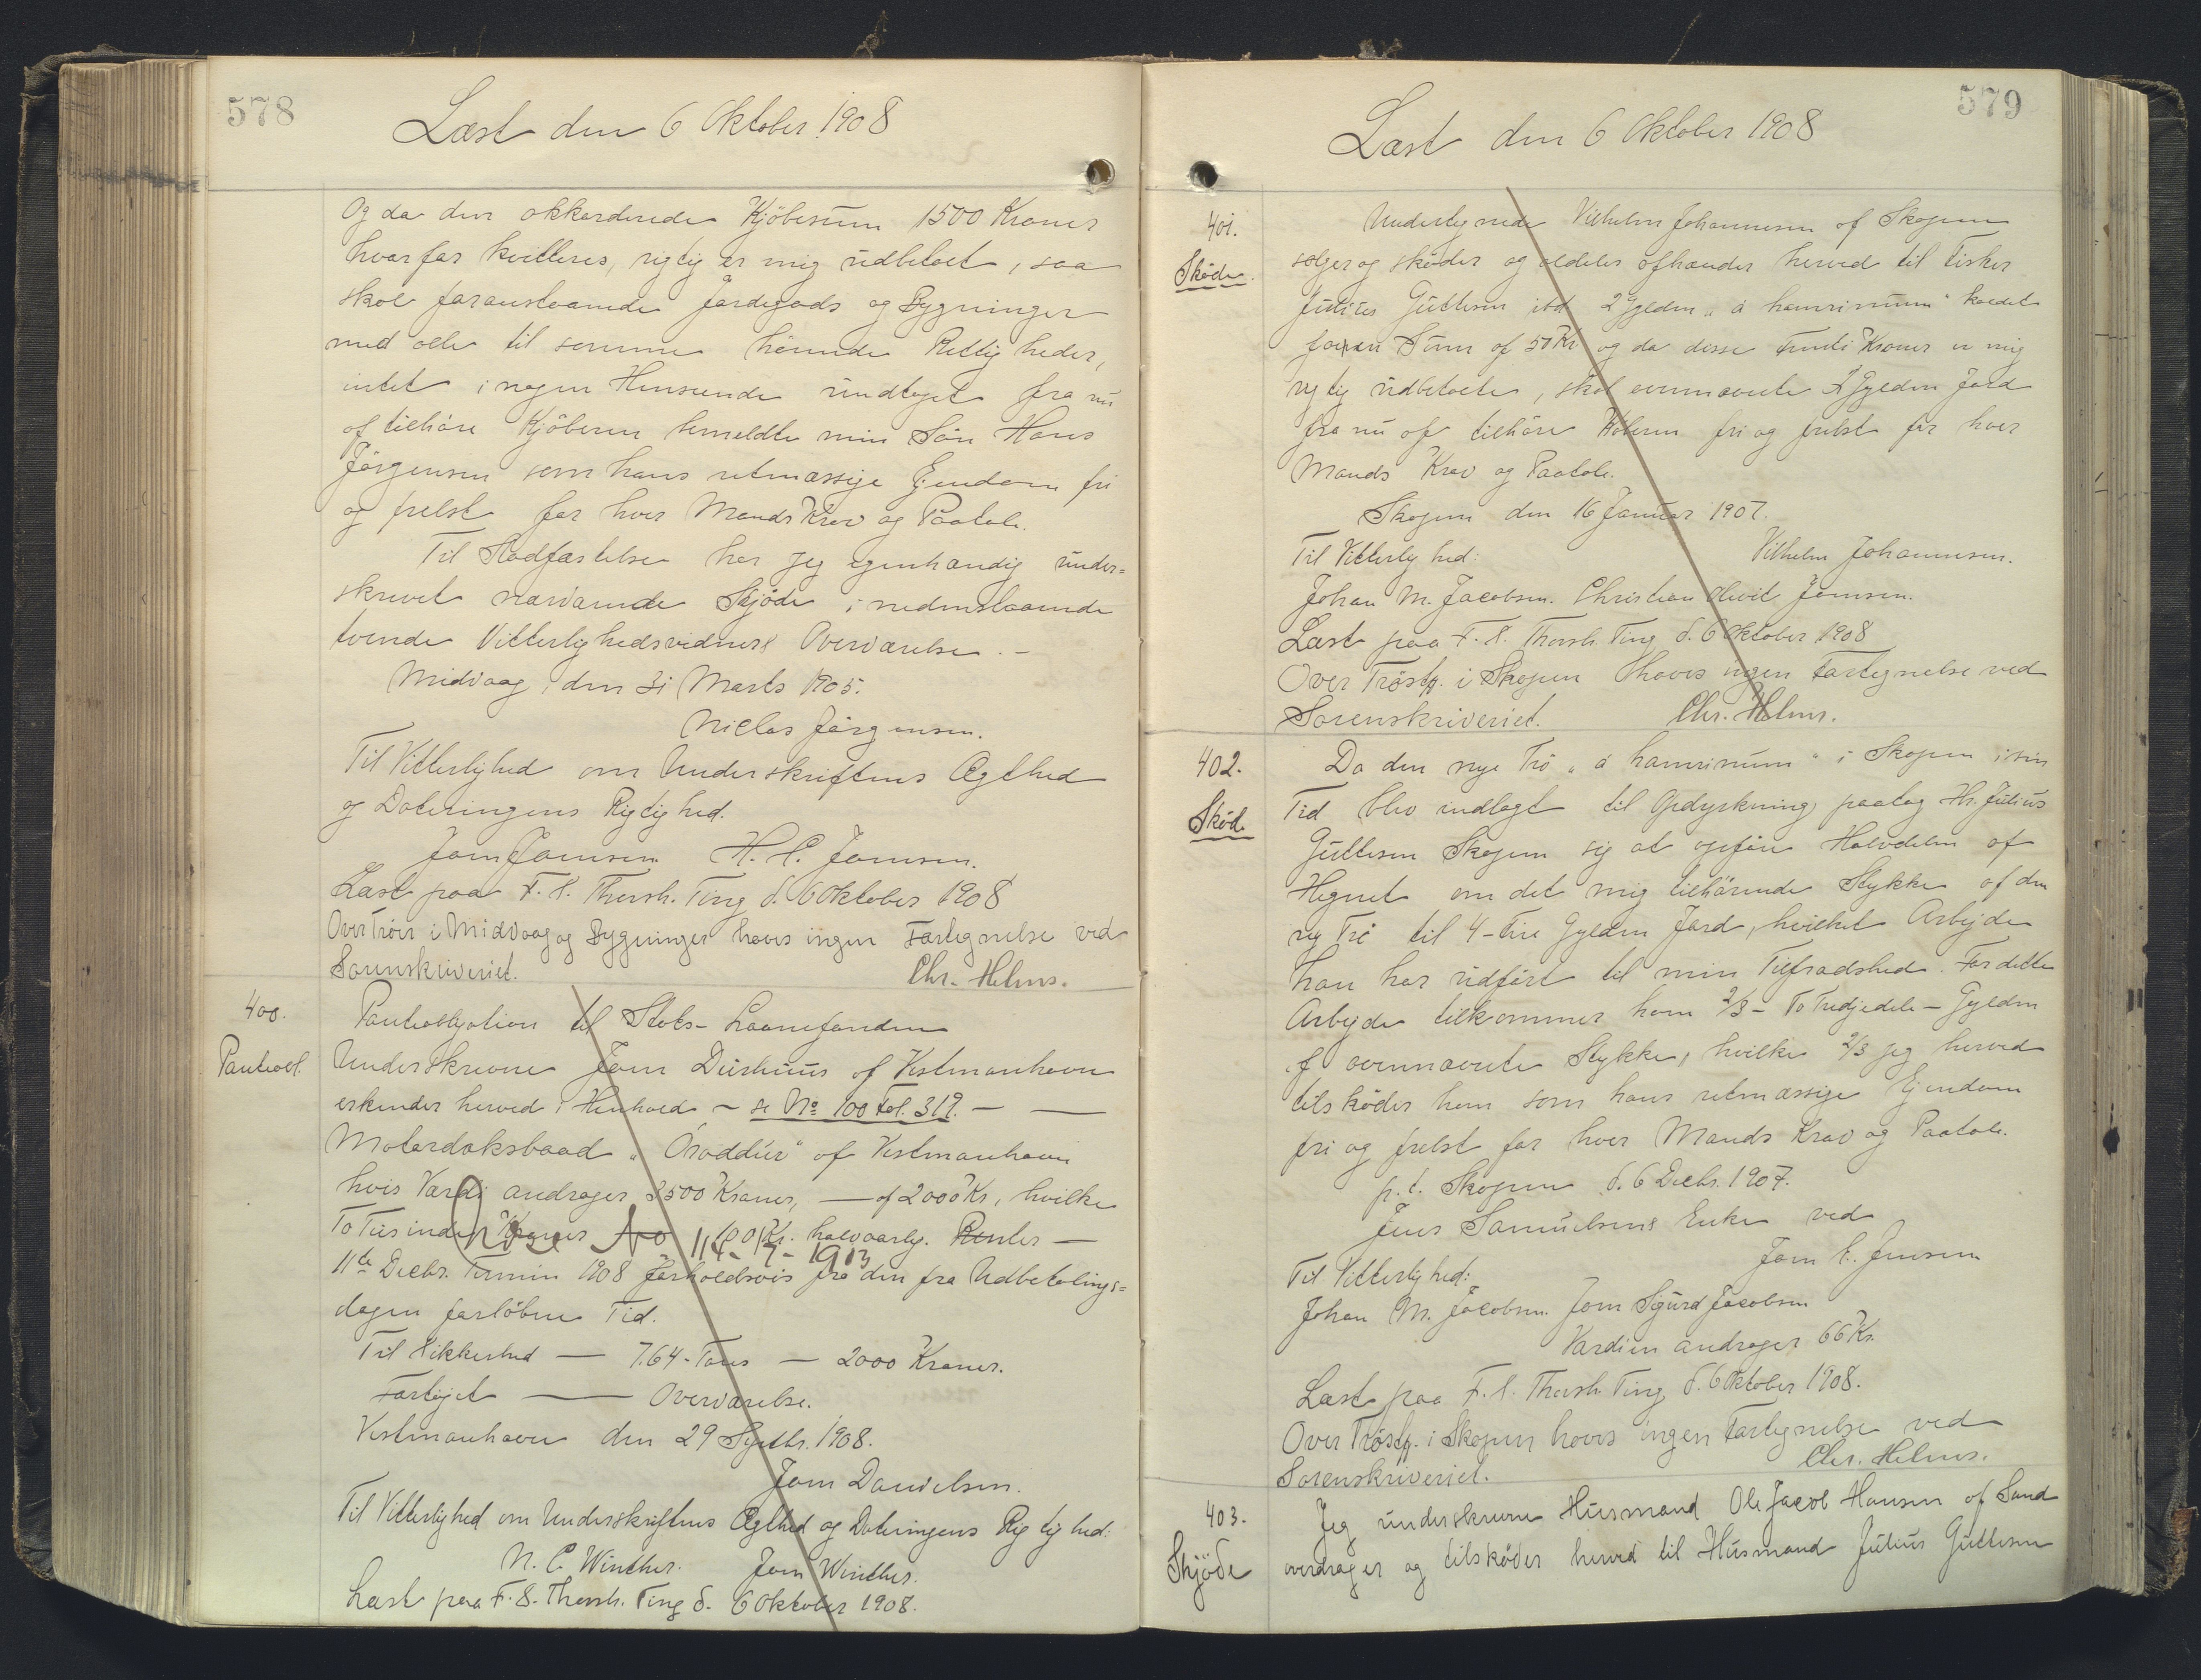 578
Læst den 6 Oktober 1908
Og da den akkorderede Kjöbesum 1500 Kroner
hvorfor kvitteres, rigtig er mig udbetalt, saa
skal foranstaaende Jordegods og Bygninger
med alle til samme hörende Rettigheder,
intet i nogen Henseende undtaget fra nu
af tilhöre Kjöberen bemeldte min Sön Hans
Jörgensen som hans retmæssige Ejendom fri
og frelst for hver Mands Krav og Paatale.
Til Stadfæstelse har jeg egenhændig under=
skrevet nærværende Skjöde i nedenstaaende
tvende Vitterlighedsvidners Overværelse. -
Midvaag, den 31 Marts 1905.
Niclas Jörgensen.
Til Vitterlighed om Underskriftens Ægthed
og Dateringens Rigtighed.
Joen Joensen H. P. Joensen.
Læst paa F. S. Thorsh. Ting d. 6 Oktober 1908
Over Tröer i Midvaag og Bygninger haves ingen Fortegnelse ved
Sorenskriveriet. Chr. Helms.
400.
Panteobl.
Panteobligation til Stats-Laanefonden
Underskrevne Joen Duruhuus af Vestmanhavn
erkender herved i Henhold - se No 100 fol. 319. -
Motordæksbaad " Óraddur" af Vestmanhavn
hvis Værdi andrager 3500 Kroner, — af 2000 Kr, hvilke
To Tusinde Kroner 100 Kr. halvaarlig. Renter —
No 11 - 7 - 1913
11te Decbr. Termin 1908 forholdsvis fra den fra Udbetalings=
dagen forløbne Tid.
Til Sikkerhed — 7.64 - Tons — 2000 Kroner.
Fartöjet — Overværelse.
Vestmanhavn den 29 Septbr. 1908.
Joen Danielsen.
Til Vitterlighed om Underskriftens Ægthed og Dateringens Rigtighed:
N. C. Winther. Joen Winther.
Læst paa F. S. Thorsh. Ting d. 6 Oktober 1908.
579
Læst den 6 Oktober 1908
401.
Sköde.
Undertegnede Vilhelm Johannesen af Skopen
sælger og sköder og aldeles afhænder herved til Fisker
Julius Guttesen ibd 2 Gylden "á hamrinum" kaldet
for en Sum af 50 Kr og da disse Femti Kroner er mig
rigtig udbetalte, skal ovennævnte 2 Gylden Jord
fra nu af tilhöre Köberen fri og frelst for hver
Mands Krav og Paatale.
Skopen den 16 Januar 1907.
Til Vitterlighed: Vilhelm Johannesen.
Johan M. Jacobsen. Christian Olivit Joensen.
Læst paa F. S. Thorsh. Ting d. 6 Oktober 1908
Over Tröstk. i Skopen haves ingen Fortegnelse ved
Sorenskriveriet. Chr. Helms.
402.
Sköde
Da den nye Trö "á hamrinum" i Skopen i sin
Tid blev indlagt til Opdyrkning paatog Hr. Julius
Guttesen Skopen sig at opföre Halvdelen af
Hegnet om det mig tilhörende Stykke af den
ny Trö til 4 - Fire Gylden Jord, hvilket Arbejde
han har udfört til min Tilfredshed. For dette
Arbejde tilkommer ham 2/3 - To Tredjedele - Gylden
af ovennævnte Stykke, hvilke 2/3 jeg herved
tilsköder ham som hans retmæssige Ejendom
fri og frelst for hver Mands Krav og Paatale.
p.t. Skopen d. 6 Decbr. 1907.
Jens Samuelsens Enke ved
Joen E. Jensen
Til Vitterlighed:
Johan M. Jacobsen. Joen Sigurd Jacobsen
Værdien andrager 66 Kr.
Læst paa F. S. Thorsh. Ting d. 6 Oktober 1908.
Over Tröstk. i Skopen haves ingen Fortegnelse ved
Sorenskriveriet. Chr. Helms.
403.
Skjöde
Jeg underskrevne Husmand Ole Jacob Hansen af Sand
overdrager og tilsköder herved til Husmand Julius Guttesen